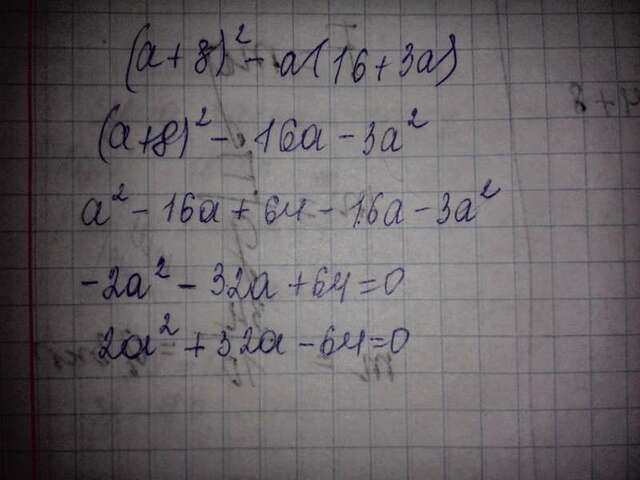 (a+8)² - a(16+3a)
(a+8)² - 16a - 3a²
a² - 16a + 64 - 16a - 3a²
-2a² - 32a + 64 = 0
2a² + 32a - 64 = 0